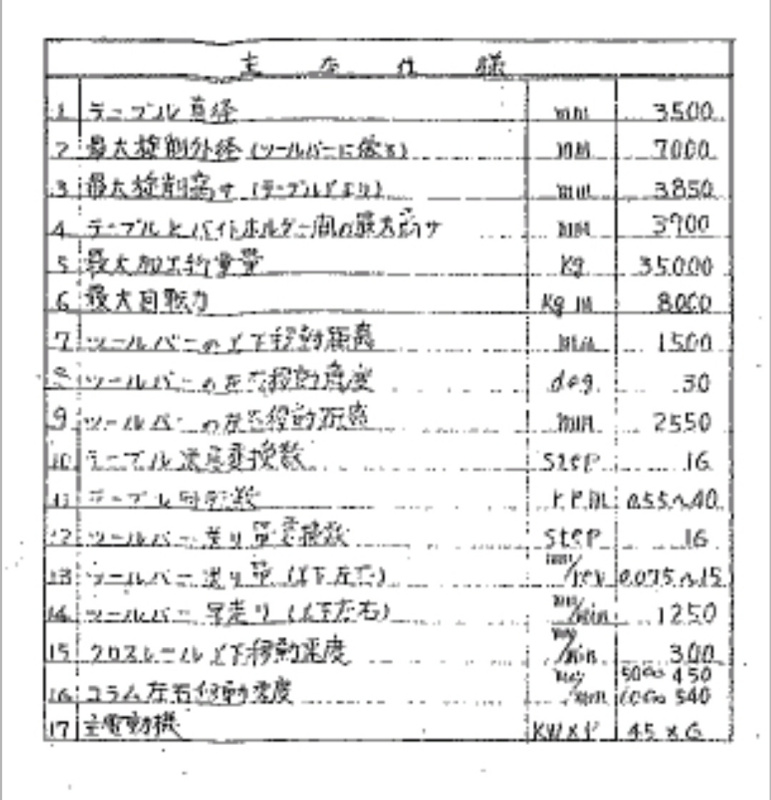 主な仕様
1 テーブル直径 mm 3500
2 最大旋削外径 (ツールバーに依る) mm 7000
3 最大旋削高サ (テーブル mm 3850
4 テーブルとバイトホルダー間の最大高サ mm 3900
5 最大加工物重量 Kg 35000
6 最大回転力 Kg m 8000
7 ツールバーの上下移動距離 mm 1500
8 ツールバーの左右 角度 deg. 30
9 ツールバーの左右移動距離 mm 2550
10 テーブル速度変換数 step 16
11 テーブル回転数 r.p.m 0.55~40
12 ツールバー送り量変換数 step 16
13 ツールバー送り量 (上下左右) mm/rev 0.075~15
14 ツールバー早送り (上下左右) mm/min 1250
15 クロスレール上下移動速度 mm/min 300
16 コラム左右移動速度 mm/min 50c/s 450 60c/s 540
17 主電動機 KW×P 45×6